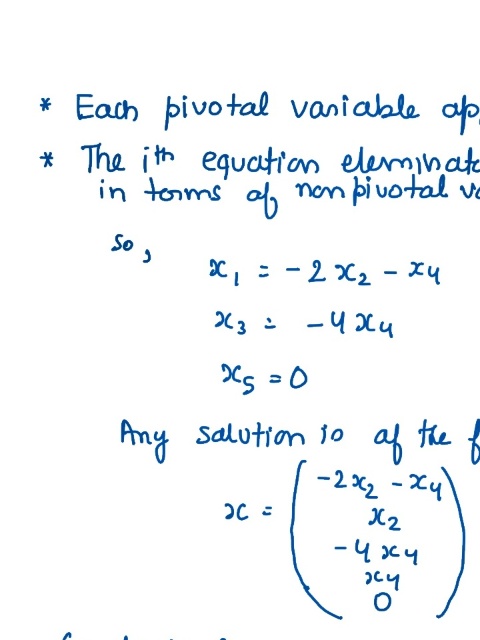 * Each pivotal variable
* The ith equation
in terms of nonpivotal
So,
x₁ = -2x₂ - x₄
x₃ = -4x₄
x₅ = 0
Any solution is of the
x = (-2x₂ - x₄
x₂
-4x₄
x₄
0)